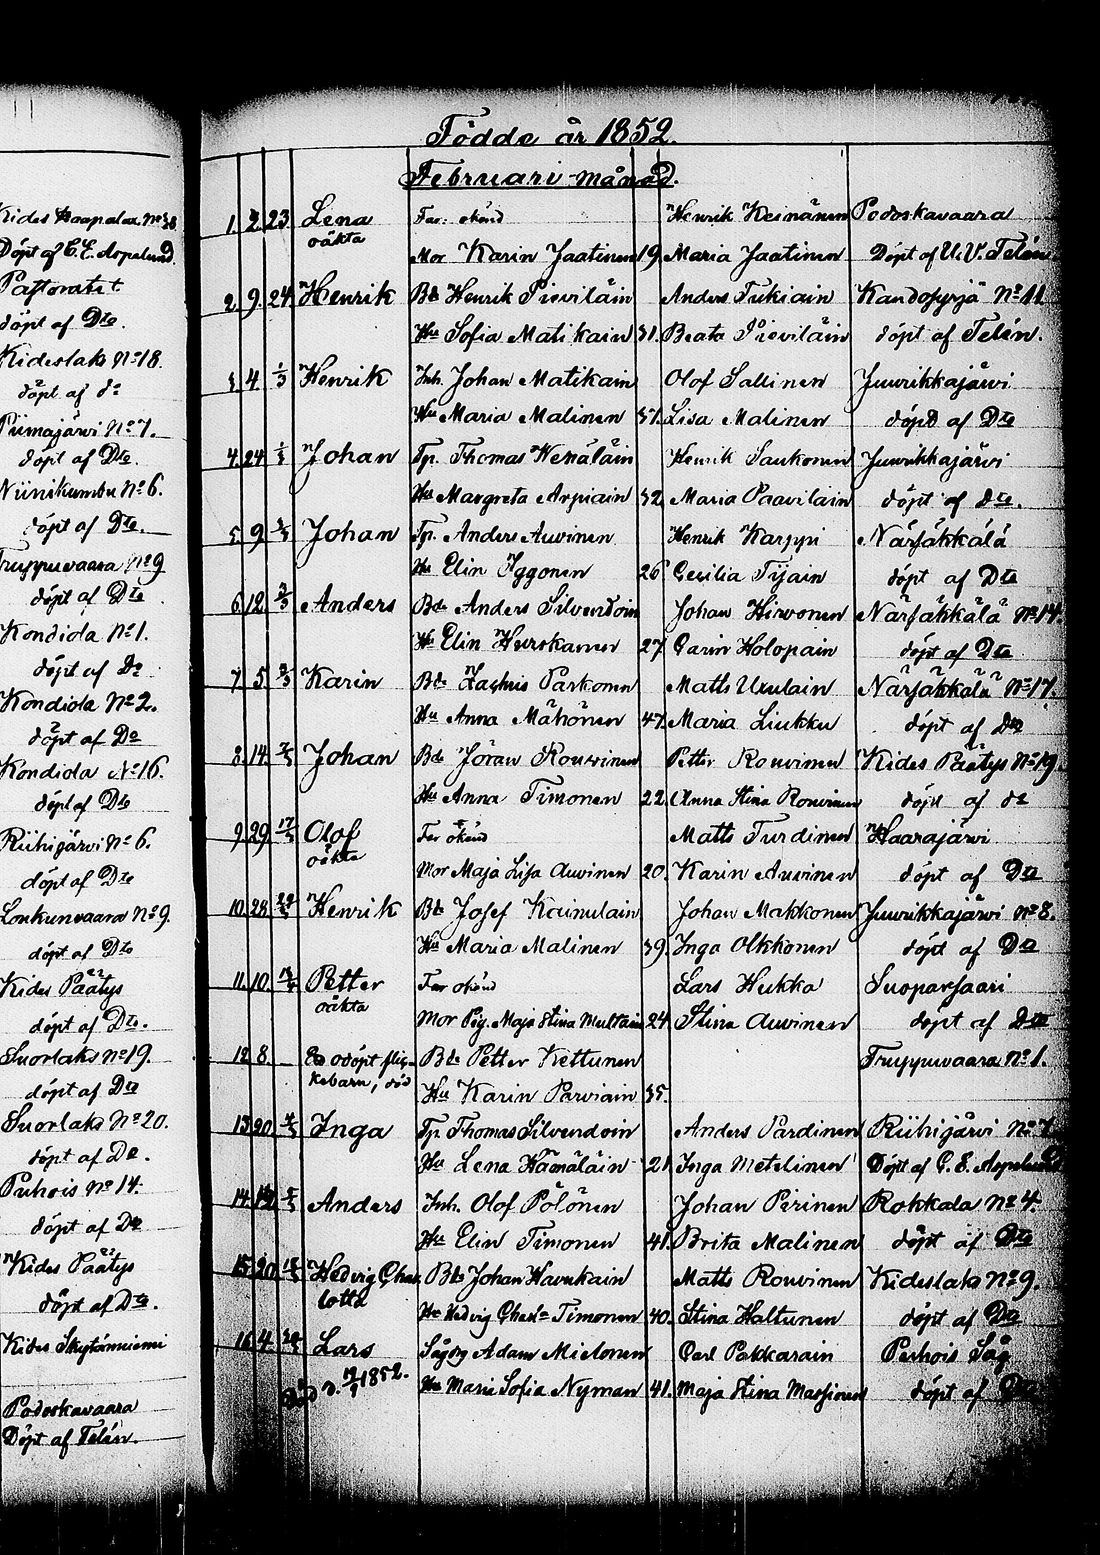 Kides Haapalax No 38
Döpt af C. E. Aspelund.
Pastoratet
döpt af Dto.
Kideslaks No 18.
döpt af do
Piimajärvi No 7.
döpt af Dto.
Niinikumbu No 6.
döpt af Dto.
Truppuvaara No 9
döpt af Dto
Kondiola No 1.
döpt af Do
Kondiola No 2.
döpt af Do
Kondiola No 16.
döpt af Dto
Riihijärvi No 6.
döpt af Dto
Loukunvaara No 9.
döpt af Dto
Kides Päätys
döpt af Dto.
Suorlaks No 19.
döpt af Dto
Suorlaks No 20.
döpt af Do.
Puhois No 14.
döpt af Do
Kides Päätys
döpt af Dto.
Kides Skytänniemi
Podoskavaara
Döpt af Telén.
Födde år 1852.
Februari månad.
1. 2 23 Lena Far: okänd Henrik Keinänen Podoskavaara
oäkta
Mor Karin Jaatinen 19. Maria Jaatinen Döpt af U. V. Telén
2. 9. 24 Henrik Bde Henrik Pieviläin Anders Tukiain Kandosyrjä No 11
Hu Sofia Matikain 31. Beata Pieviläin döpt af Telén.
3 4 1/3 Henrik Inh. Johan Matikain Olof Sallinen Juurikkajärvi
Hu Maria Malinen 37. Lisa Malinen döpt af Dto
4. 24 1/3 Johan Tp. Thomas Venäläin Henrik Saukonen Juurikkajärvi
Hu Margreta Arpiain 32 Maria Paavilain döpt af dto.
5 9 Johan Tp. Anders Auvinen Henrik Karppi Närsäkkälä
Hu Elin Iggonen 26 Cecilia Tijain döpt af Dto
6 12 2/3 Anders Bde Anders Silvendoin Johan Hirvonen Närsäkkälä No 14.
Hu Elin Hurskainen 27 Carin Holopain döpt af Dto
7 5 2/3 Karin Bde Zachris Parkonen Matts Uxulain Närsäkkälä No 17.
Hu Anna Mähönen 47. Maria Liukku döpt af Dto
8. 14. Johan Bde Jöran Rouvinen Petter Rouvinen Kides Päätys No 19
Hu Anna Timonen 22. Anna Stina Rouvinen döpt af do
9. 29. Olof Far okänd Matts Turdinen Haarajärvi
oäkta
Mor Maja Lisa Auvinen 20. Karin Auvinen döpt af Dto
10. 28 Henrik Bde Josef Kainulain Johan Makkonen Juurikkajärvi No 8.
Hu Maria Malinen 39. Inga Olkkonen döpt af Dto
11. 10. Petter Far okänd Lars Hukka Suoparsaari
oäkta
Mor Pig. Maja Stina Multain 24. Stina Auvinen döpt af Dto
12 8. Ett odöpt flic- Bde Petter Kettunen Truppuvaara No 1.
kebarn, död Hu Karin Parviain 35.
13 20 Inga Tp. Thomas Silvendoin Anders Pardinen Riihijärvi No 7
Hu Lena Hämäläin 21 Inga Metelinen Döpt af C. E. Aspelund
14. Anders Inh. Olof Pölönen Johan Pirinen Rokkala No 4.
Hu Elin Timonen 41. Brita Malinen döpt af Dto
15 20 Hedvig Char- Bde Johan Havukain Matts Rouvinen Kideslaks No 9.
lotta Hu Hedvig Charla Timonen 40. Stina Haltunen döpt af Do
16 4 Lars Sågdr Adam Mielonen Carl Pakkarain Puhois Såg
Död d. 1852. Hu Maria Sofia Nyman 41. Maja Stina Massinen döpt af Dto